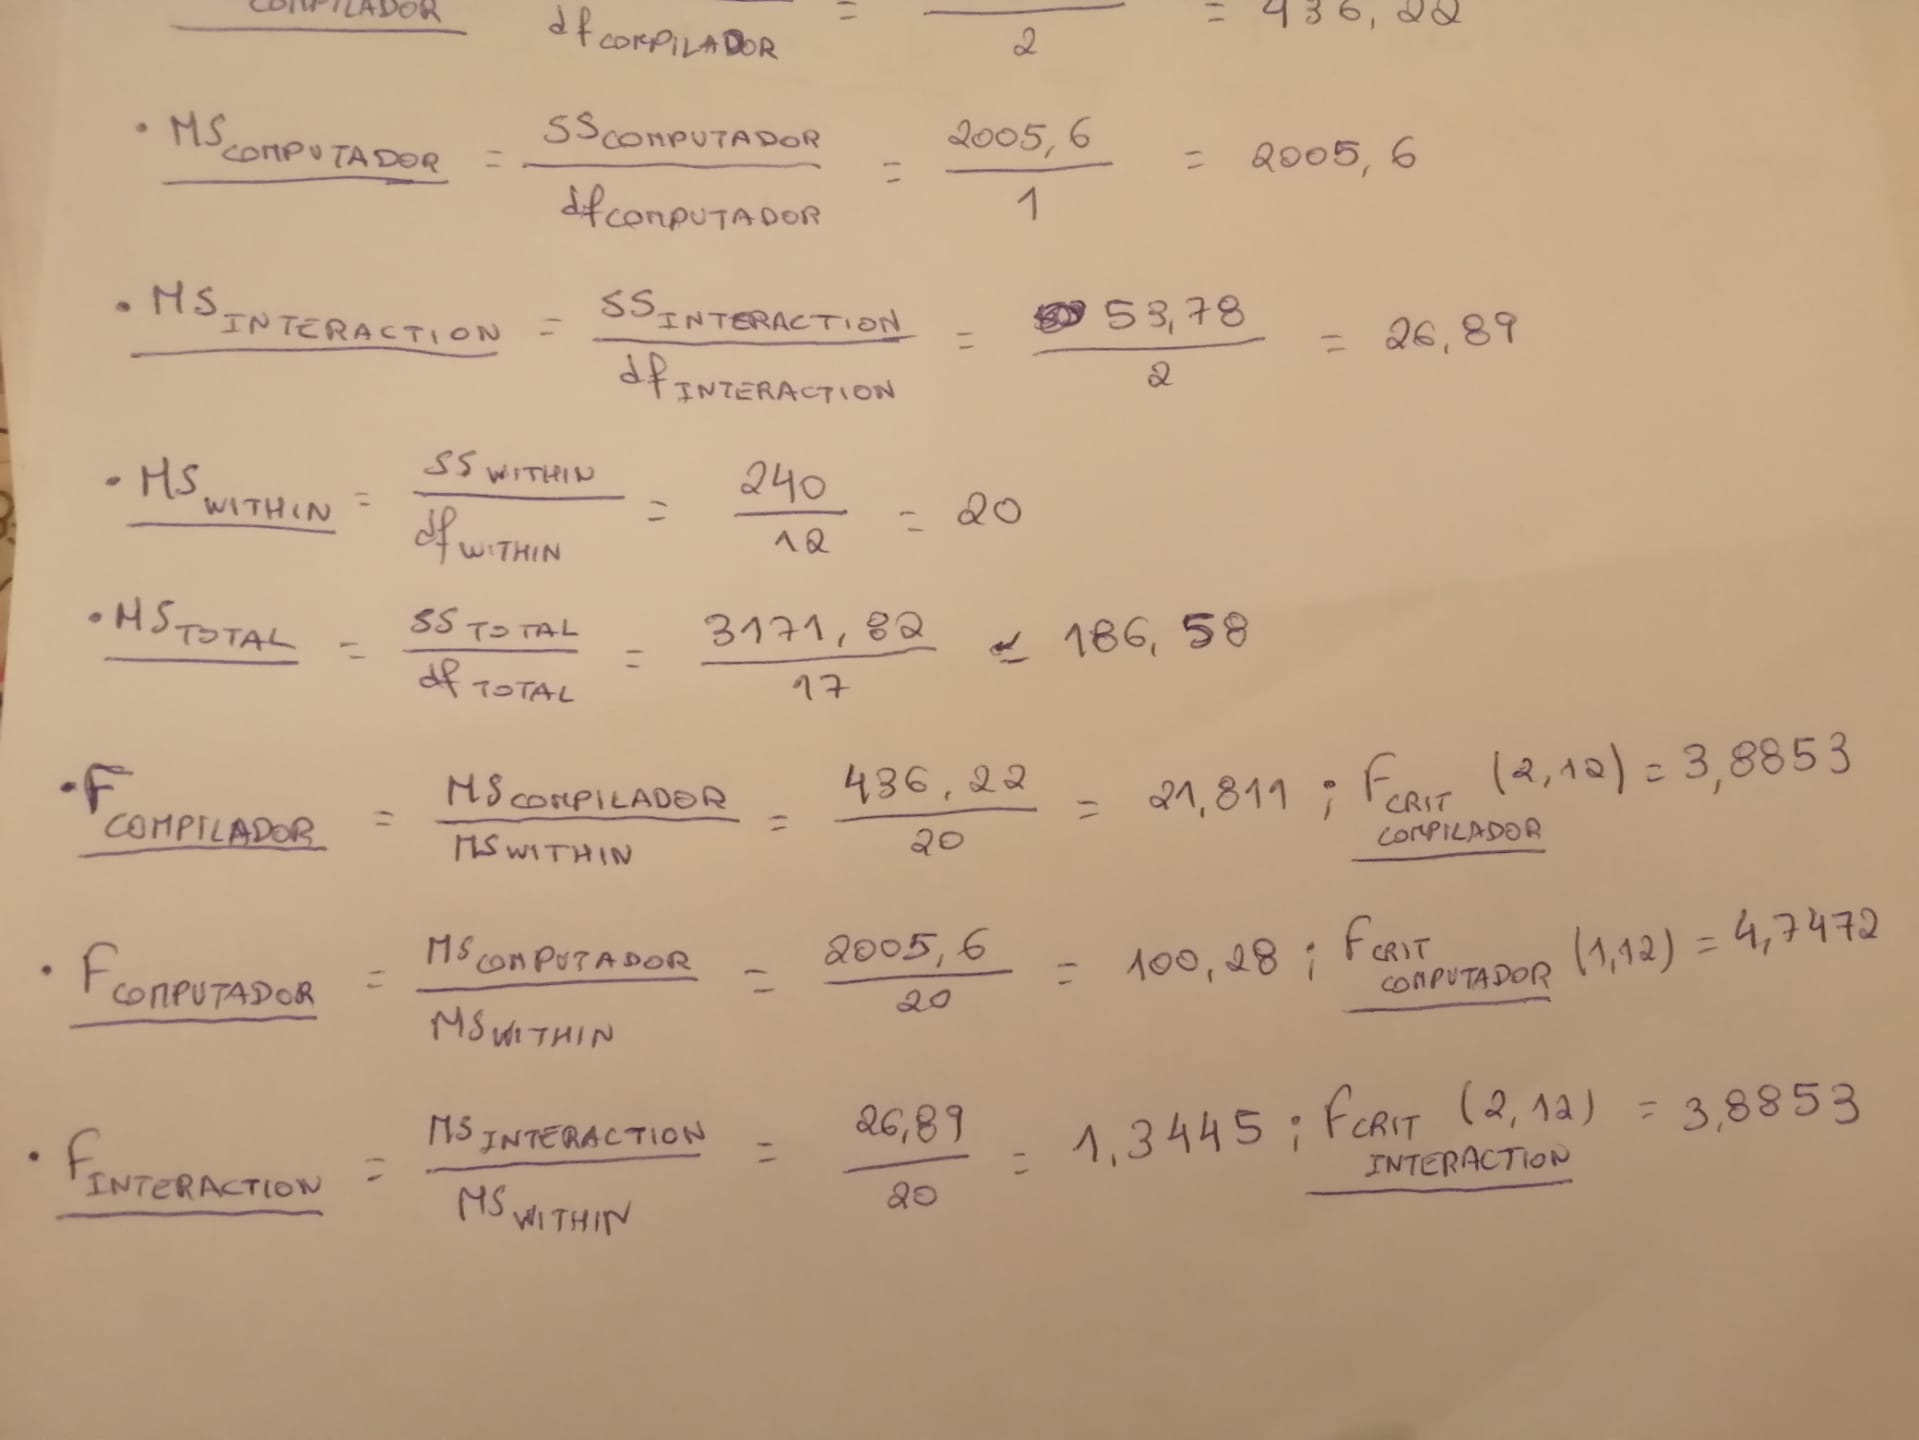 COMPILADOR = = 436,22
df COMPILADOR 2
• MS COMPUTADOR = SS COMPUTADOR / df COMPUTADOR = 2005,6 / 1 = 2005,6
• MS INTERACTION = SS INTERACTION / df INTERACTION = 53,78 / 2 = 26,89
• MS WITHIN = SS WITHIN / df WITHIN = 240 / 12 = 20
• MS TOTAL = SS TOTAL / df TOTAL = 3171,82 / 17 ≃ 186,58
• F COMPILADOR = MS COMPILADOR / MS WITHIN = 436,22 / 20 = 21,811 ; F CRIT COMPILADOR (2,12) = 3,8853
• F COMPUTADOR = MS COMPUTADOR / MS WITHIN = 2005,6 / 20 = 100,28 ; F CRIT COMPUTADOR (1,12) = 4,7472
• F INTERACTION = MS INTERACTION / MS WITHIN = 26,89 / 20 = 1,3445 ; F CRIT INTERACTION (2,12) = 3,8853